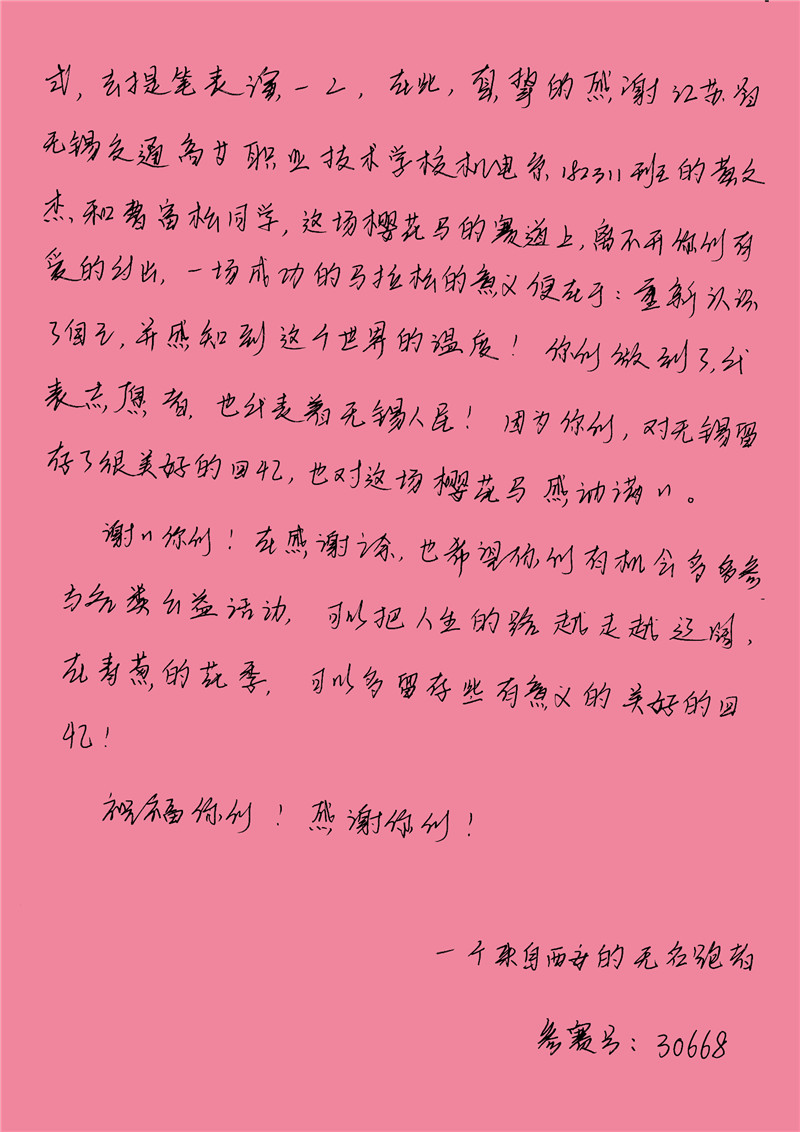 式,去提笔表演一二,在此,真挚的感谢江苏省
无锡交通高等职业技术学校机电系182311班的黄文
杰和费富松同学,这场樱花马的赛道上,离不开你们有
爱的付出,一场成功的马拉松的意义便在于:重新认识
了自己,并感知到这个世界的温度!你们做到了,代
表志愿者,也代表着无锡人民!因为你们,对无锡留
存了很美好的回忆,也对这场樱花马感动满〃。
谢〃你们!在感谢之余,也希望你们有机会多多参
与各类公益活动,可以把人生的路越走越辽阔,
在青葱的花季,可以多留存些有意义的美好的回
忆!
祝福你们!感谢你们!
一个来自西安的无名跑者
参赛号:30668